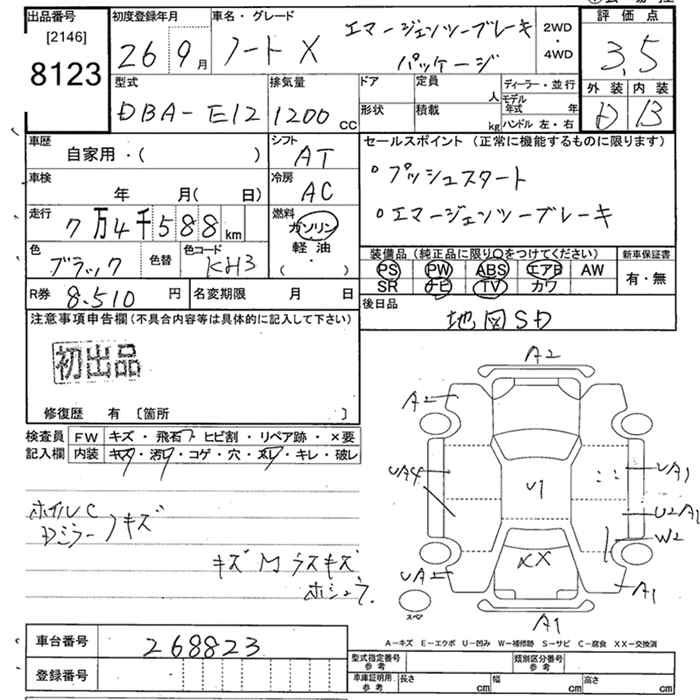 出品番号
[2146]
8123
初度登録年月
26 9月
車名・グレード
ノート X
エマージェンツーブレーキ
パッケージ
2WD
・
4WD
評価点
3.5
外装 内装
D B
型式
DBA-E12
排気量
1200 CC
ドア
形状
定員
人
積載
kg
ディーラー・並行
モデル年式 年
ハンドル 左・右
車歴
自家用・( )
シフト
AT
車検
年 月( 日)
冷房
AC
走行
7万4千588 km
燃料
ガソリン
軽油
・( )
色
ブラック
色替
色コード
KH3
セールスポイント (正常に機能するものに限ります)
・プッシュスタート
・エマージェンツーブレーキ
装備品 (純正品に限り○をつけてください)
PS PW ABS エアB AW
SR ナビ TV カワ
新車保証書
有・無
R券 8.510 円
名変期限 月 日
後日品
地図SD
注意事項申告欄(不具合内容等は具体的に記入して下さい)
初出品
修復歴 有 [箇所 ]
検査員
記入欄
FW キズ・飛石・ヒビ割・リペア跡・×要
内装 キズ・汚レ・コゲ・穴・スレ・キレ・破レ
ホイルC
Dミラー キズ
キズ M ラスキズ
ホシュウ
A2
A2
UA4
UA1
U1
U2 A1
W2
XX
UA2
A1
A1
スペア
A-キズ E-エクボ U-凹み W-補修跡 S-サビ C-腐食 XX-交換済
車台番号
268823
登録番号
型式指定番号
参考
類別区分番号
参考
車庫証明用
参考
長さ cm
幅 cm
高さ cm